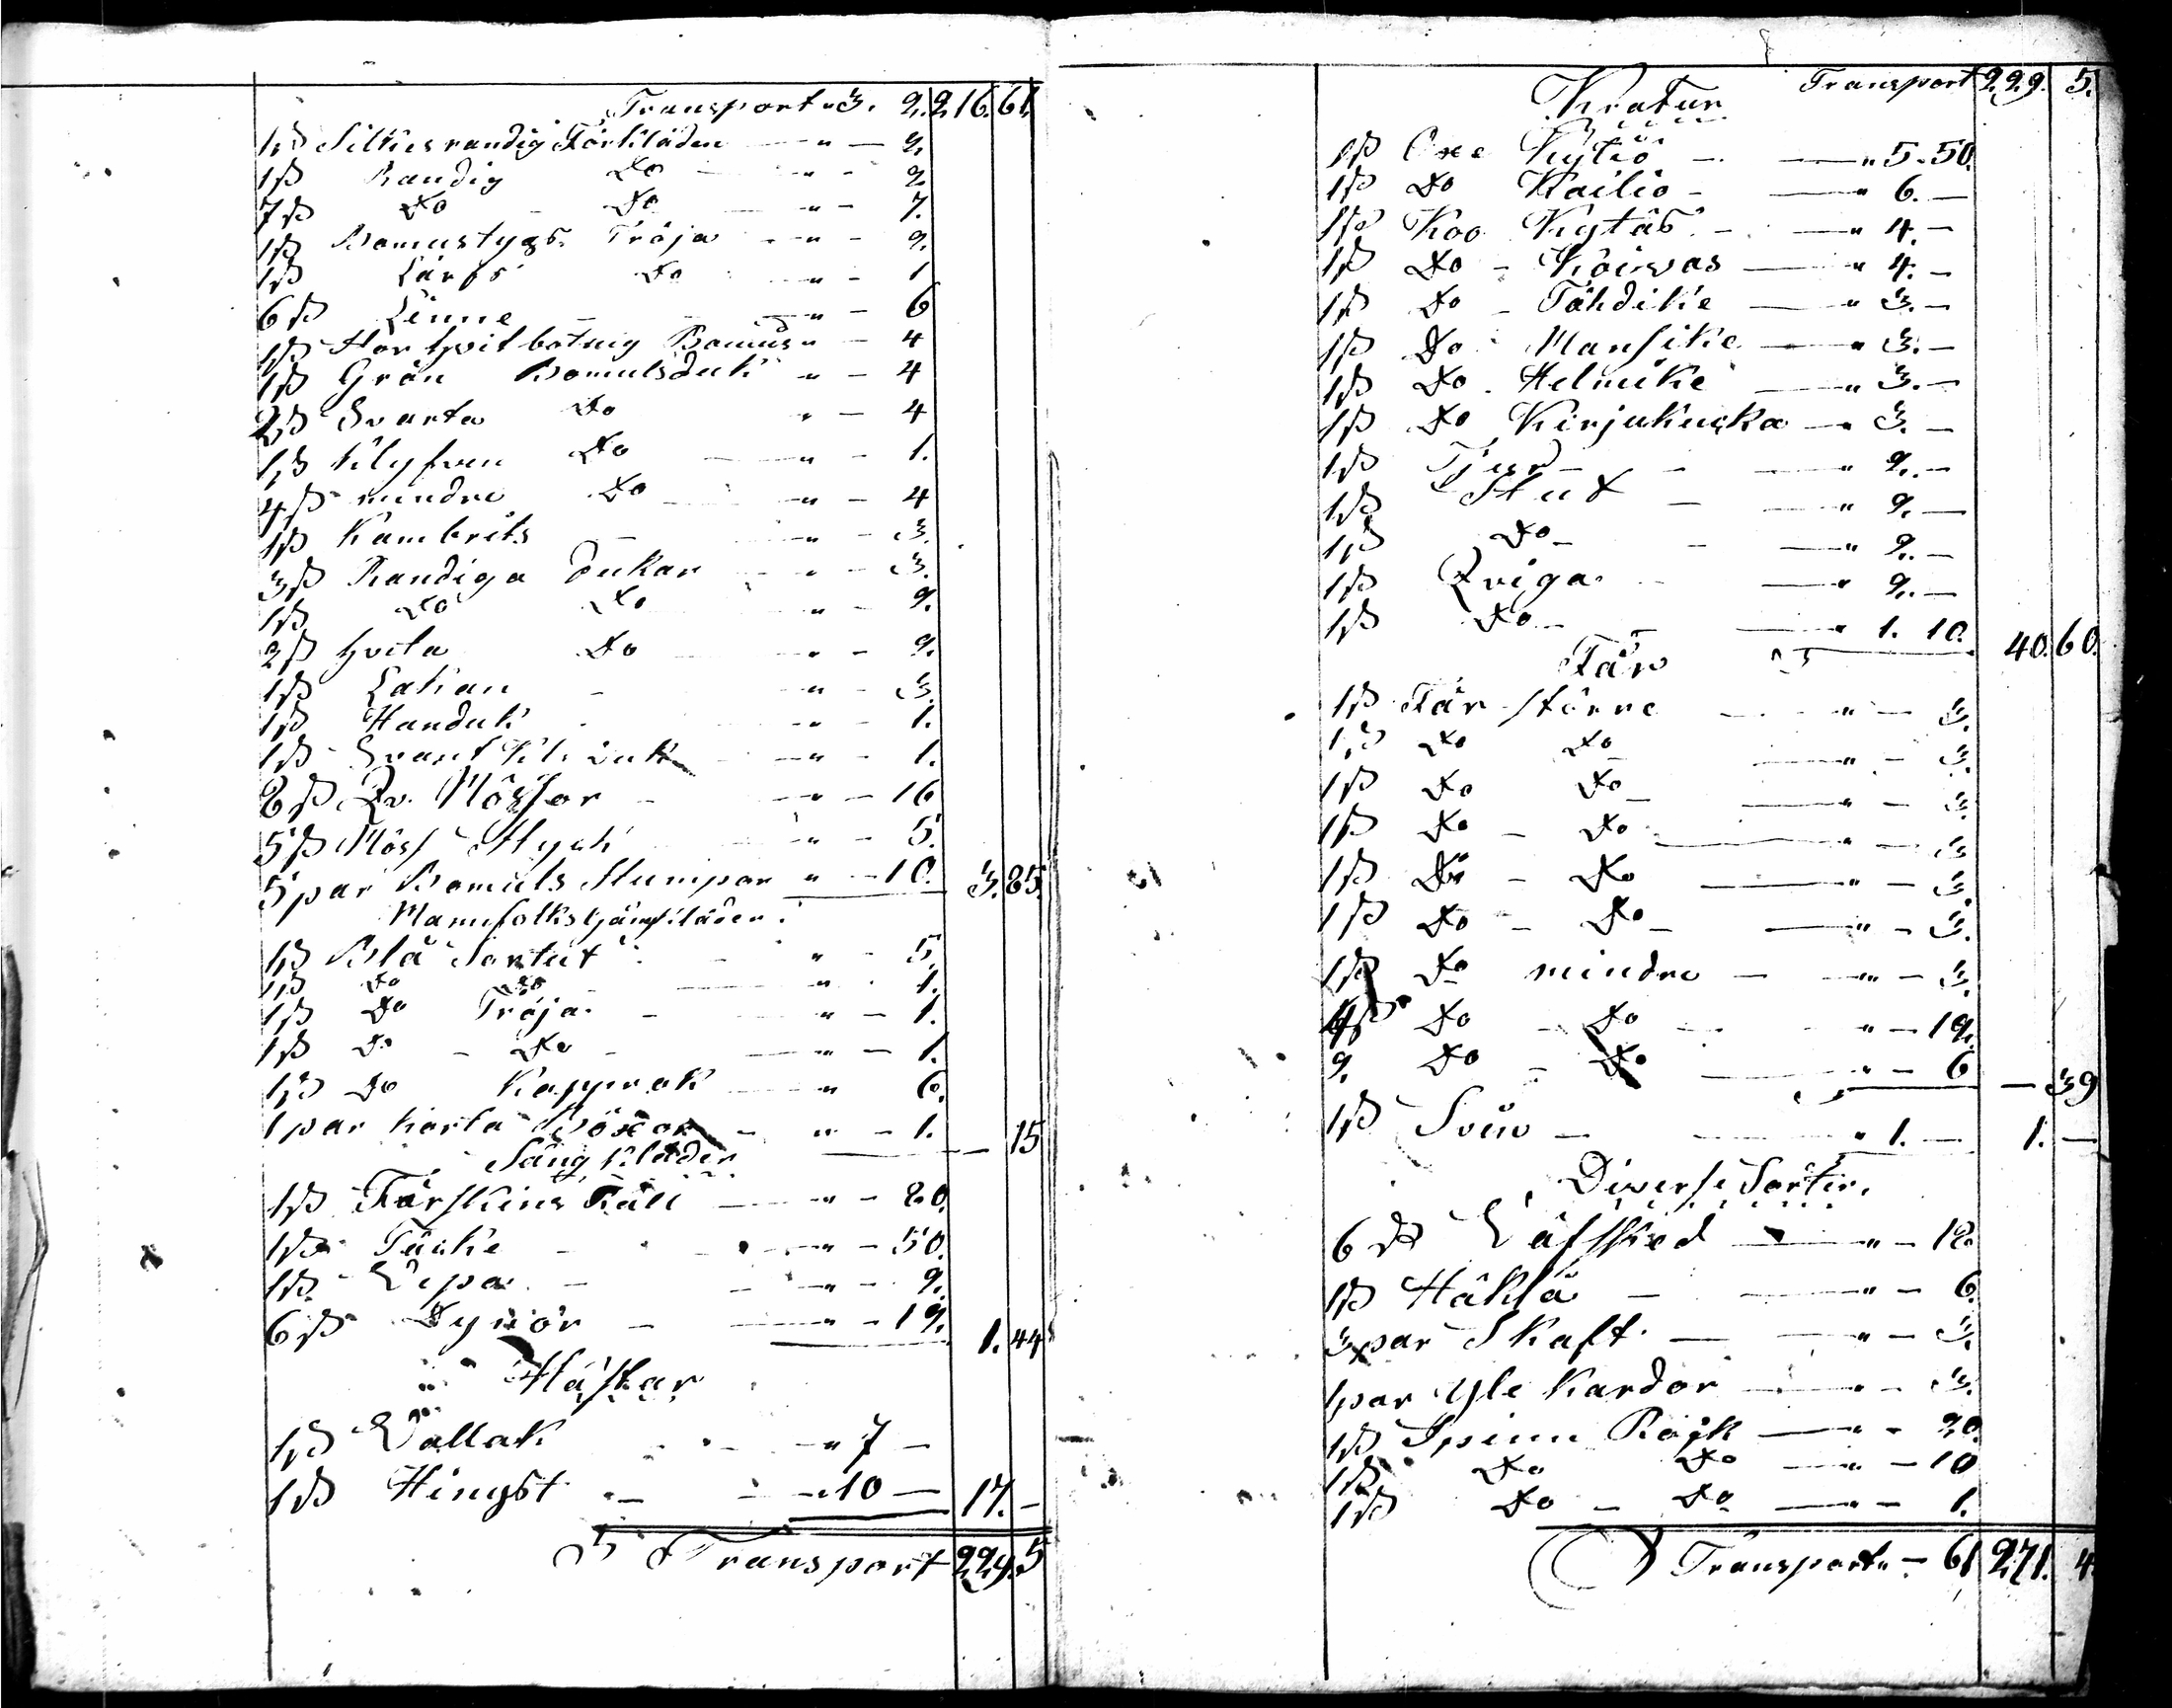 Transport " 3. 2. 216. 61.
1 st Silkes randig Förkläden — " — 2.
1 st Randig Do — " — 2.
7 st Do - Do — " — 7.
1 st Bomustygs Tröja — " — 2.
1 st Lärfs Do — " — 1
6 st Linne — " — 6
1 st Hvit botnig Bomus " — 4
1 st Grön Bomulsduk " — 4
2 st Svarta Do " — 4
1 st Klyfven Do — " — 1.
4 st mindre Do — " — 4
1 st Kambrits — " — 3.
3 st Randiga dukar — " — 3.
1 st Do Do — " — 2.
2 st hvita Do — " — 2.
1 st Lakan - — " — 3.
1 st Handuk — " — 1.
1 st Svart Kl. duk — " — 1.
8 st Qv. Mössor - — " — 16
5 st Möss Styck — " — 5.
5 par Bomuls Strumpor " — 10. 3. 85.
Mansfolks Gångkläder.
1 st Blå Sortut - " — 5.
1 st Do Do — " — 1.
1 st Do Tröja - " — 1.
1 st Do - Do - — " — 1.
1 st Do Kapprok — " 6.
1 par korta Böxor - " — 1. — 15
Säng kläder
1 st Fårskins Fäll — " — 20.
1 st Täcke - — " — 50.
1 st Vepa - — " — 2.
6 st Dynor - — " — 12. 1. 44
Hästar
1 st Vallak — " 7 —
1 st Hingst - — " 10 — 17. -
Transport 229. 5
Transport 229. 5.
Kratur
1 st Oxe Kytiö - — " 5. 50.
1 st Do Hailio - — " 6. —
1 st Koo Kytäs - — " 4. —
1 st Do - Koirvas — " 4. —
1 st Do - Tähdike — " 3. —
1 st Do Mansike — " 3. —
1 st Do Helmike — " 3. —
1 st Do Kirjukucka — " 3. —
1 st Tjur - - — " 2. —
1 st Stut - — " 2. —
1 st Do - - — " 2. —
1 st Qviga - — " 2. —
1 st Do - - — " 1. 10. 40. 60.
Får
1 st Får större — " — 3.
1 st Do Do — " — 3.
1 st Do Do — " — 3.
1 st Do - Do — " — 3
1 st Do - Do — " — 3.
1 st Do - Do — " — 3.
1 st Do mindre — " — 3.
4 st Do - Do — " — 12.
2. Do - Do — " — 6 — 39
1 st Svin — " 1. — 1. —
Diverse Sorter.
6 st Väfsked — " — 18
1 st Häkla - — " — 6.
3 par Skaft — " — 3.
1 par Yle Kardor — " — 3.
1 st Spinn Råck — " - 20.
1 st Do Do — " — 10
1 st Do - Do — " — 1.
Transport " — 61 271. 4.